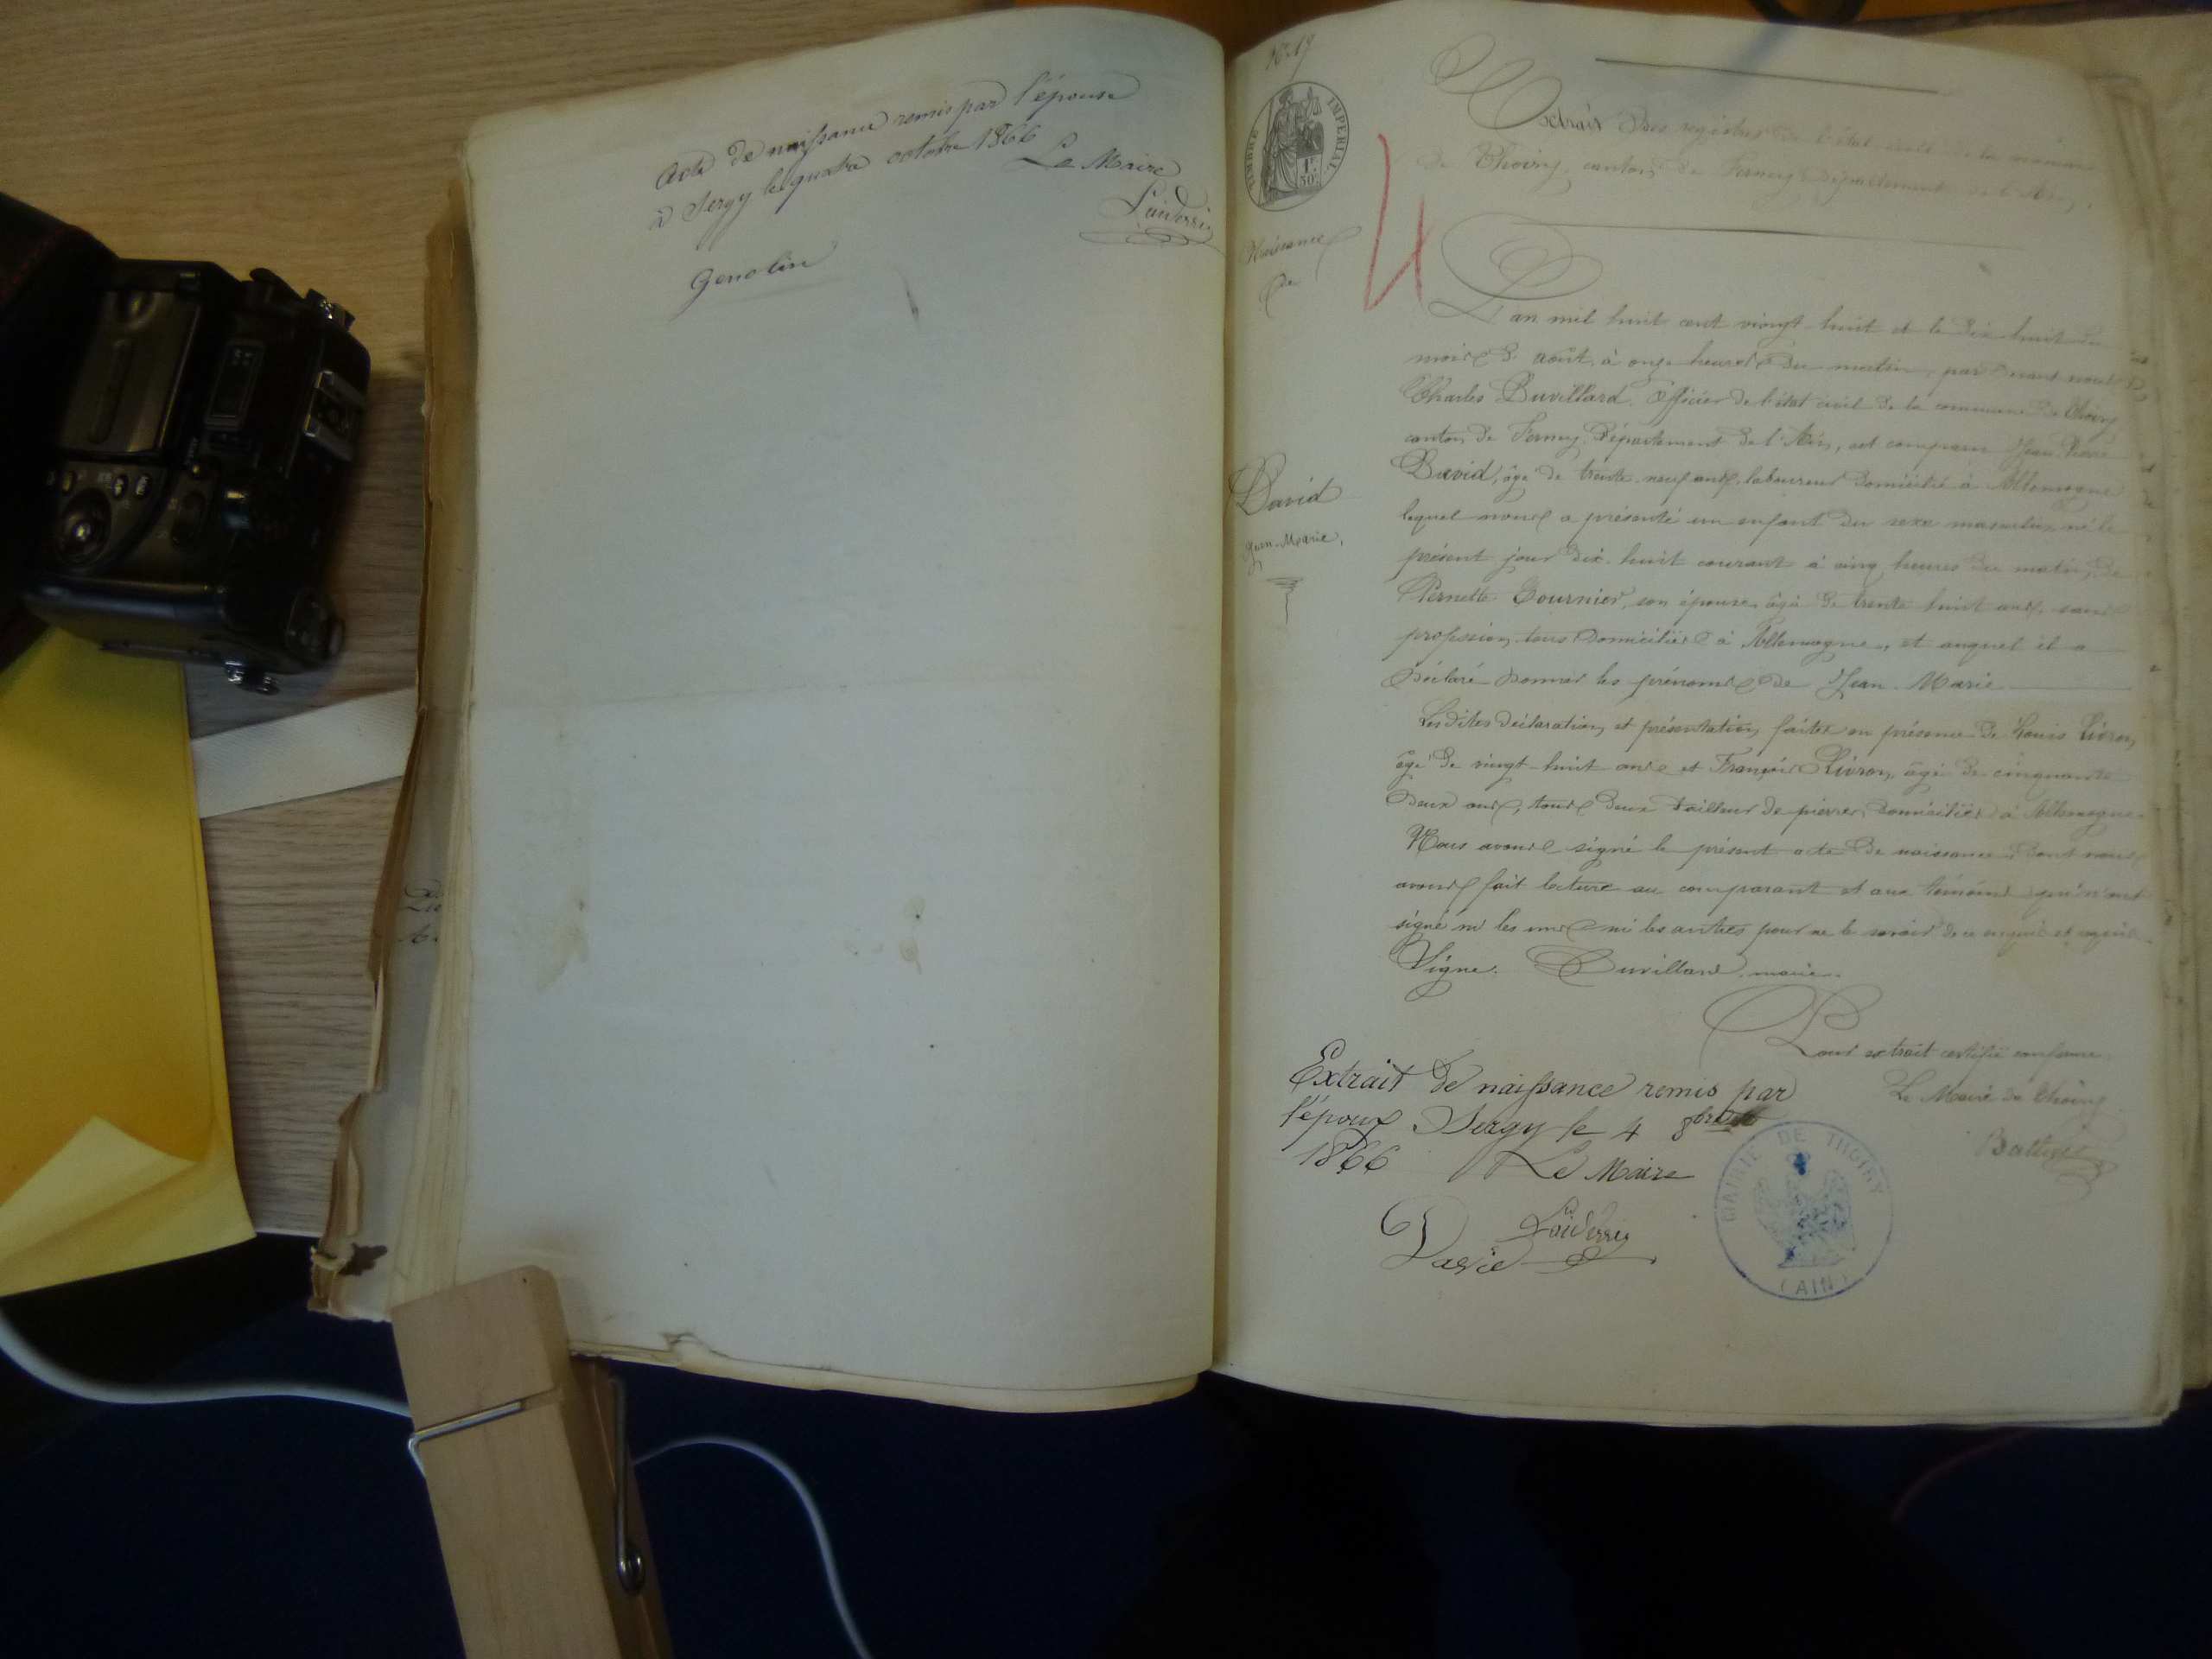 Acte de naissance remis par l'épouse
à Sergy le quatre octobre 1866
Le Maire
Genolin
No 17
TIMBRE IMPERIAL
1F
50c
4
Extrait des registres de l'état civil de la commune
de Thoiry, canton de Ferney, département de l'Ain,
Naissance
de
David
Jean-Marie.
L'an mil huit cent vingt huit et le dix huit du
mois d'août, à onze heures du matin, par devant nous
Charles Duvillard, Officier de l'état civil de la commune de Thoiry
canton de Ferney, Département de l'Ain, est comparu Jean Pierre
David, âgé de trente neuf ans, laboureur domicilié à Allemogne
lequel nous a présenté un enfant du sexe masculin, né le
présent jour dix-huit courant à cinq heures du matin, de
Pernette Tournier, son épouse âgée de trente huit ans, sans
profession, tous domiciliés à Allemogne, et auquel il a
déclaré donner les prénoms de Jean-Marie
Les dites déclaration et présentation faites en présence de Louis Livron,
âgé de vingt-huit ans et François Livron, âgé de cinquante
deux ans, tous deux tailleur de pierres, domiciliés à Allemogne.
Nous avons signé le présent acte de naissance, dont nous
avons fait lecture au comparant et aux témoins qui n'ont
signé ni les uns ni les autres pour ne le savoir de ce enquis et
Signé. Duvillard, maire.
Pour extrait certifié conforme
Le Maire de Thoiry
Extrait de naissance remis par
l'époux Sergy le 4 8bre
1866 Le Maire
David
MAIRIE DE THOIRY
(AIN)